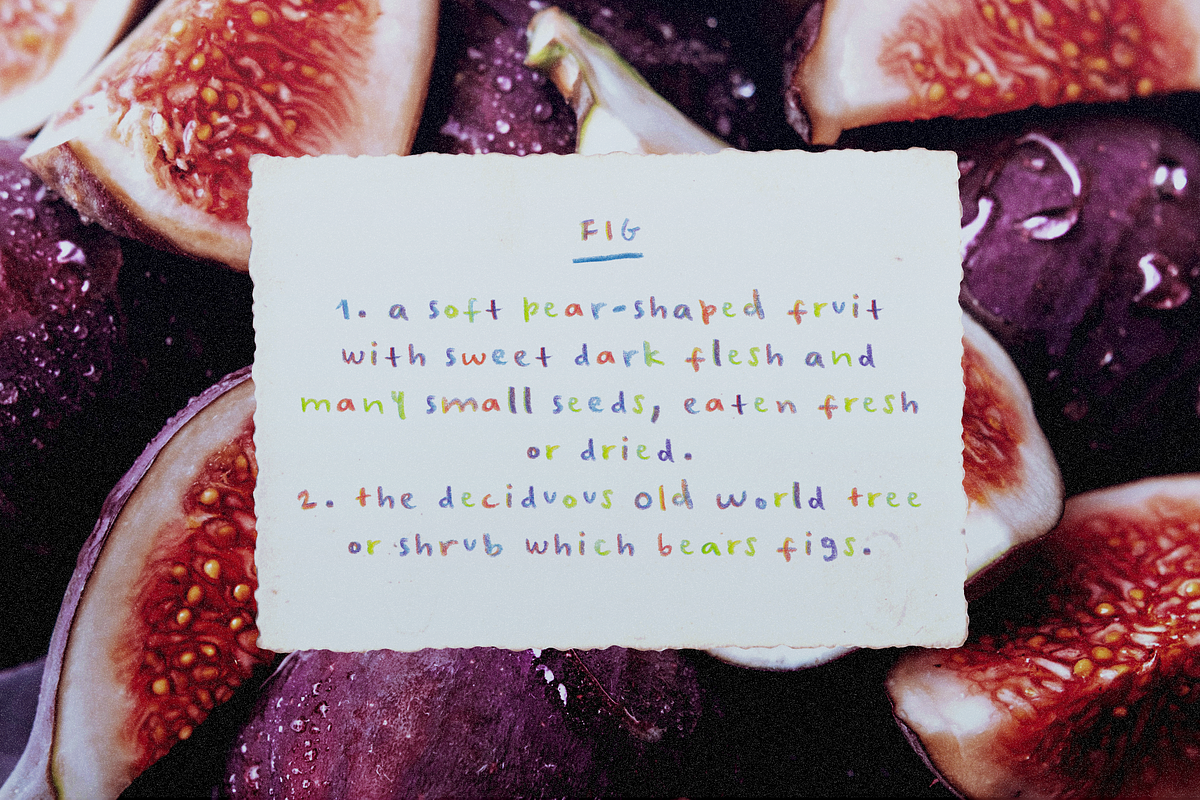 FIG
1. a soft pear-shaped fruit
with sweet dark flesh and
many small seeds, eaten fresh
or dried.
2. the deciduous old world tree
or shrub which bears figs.